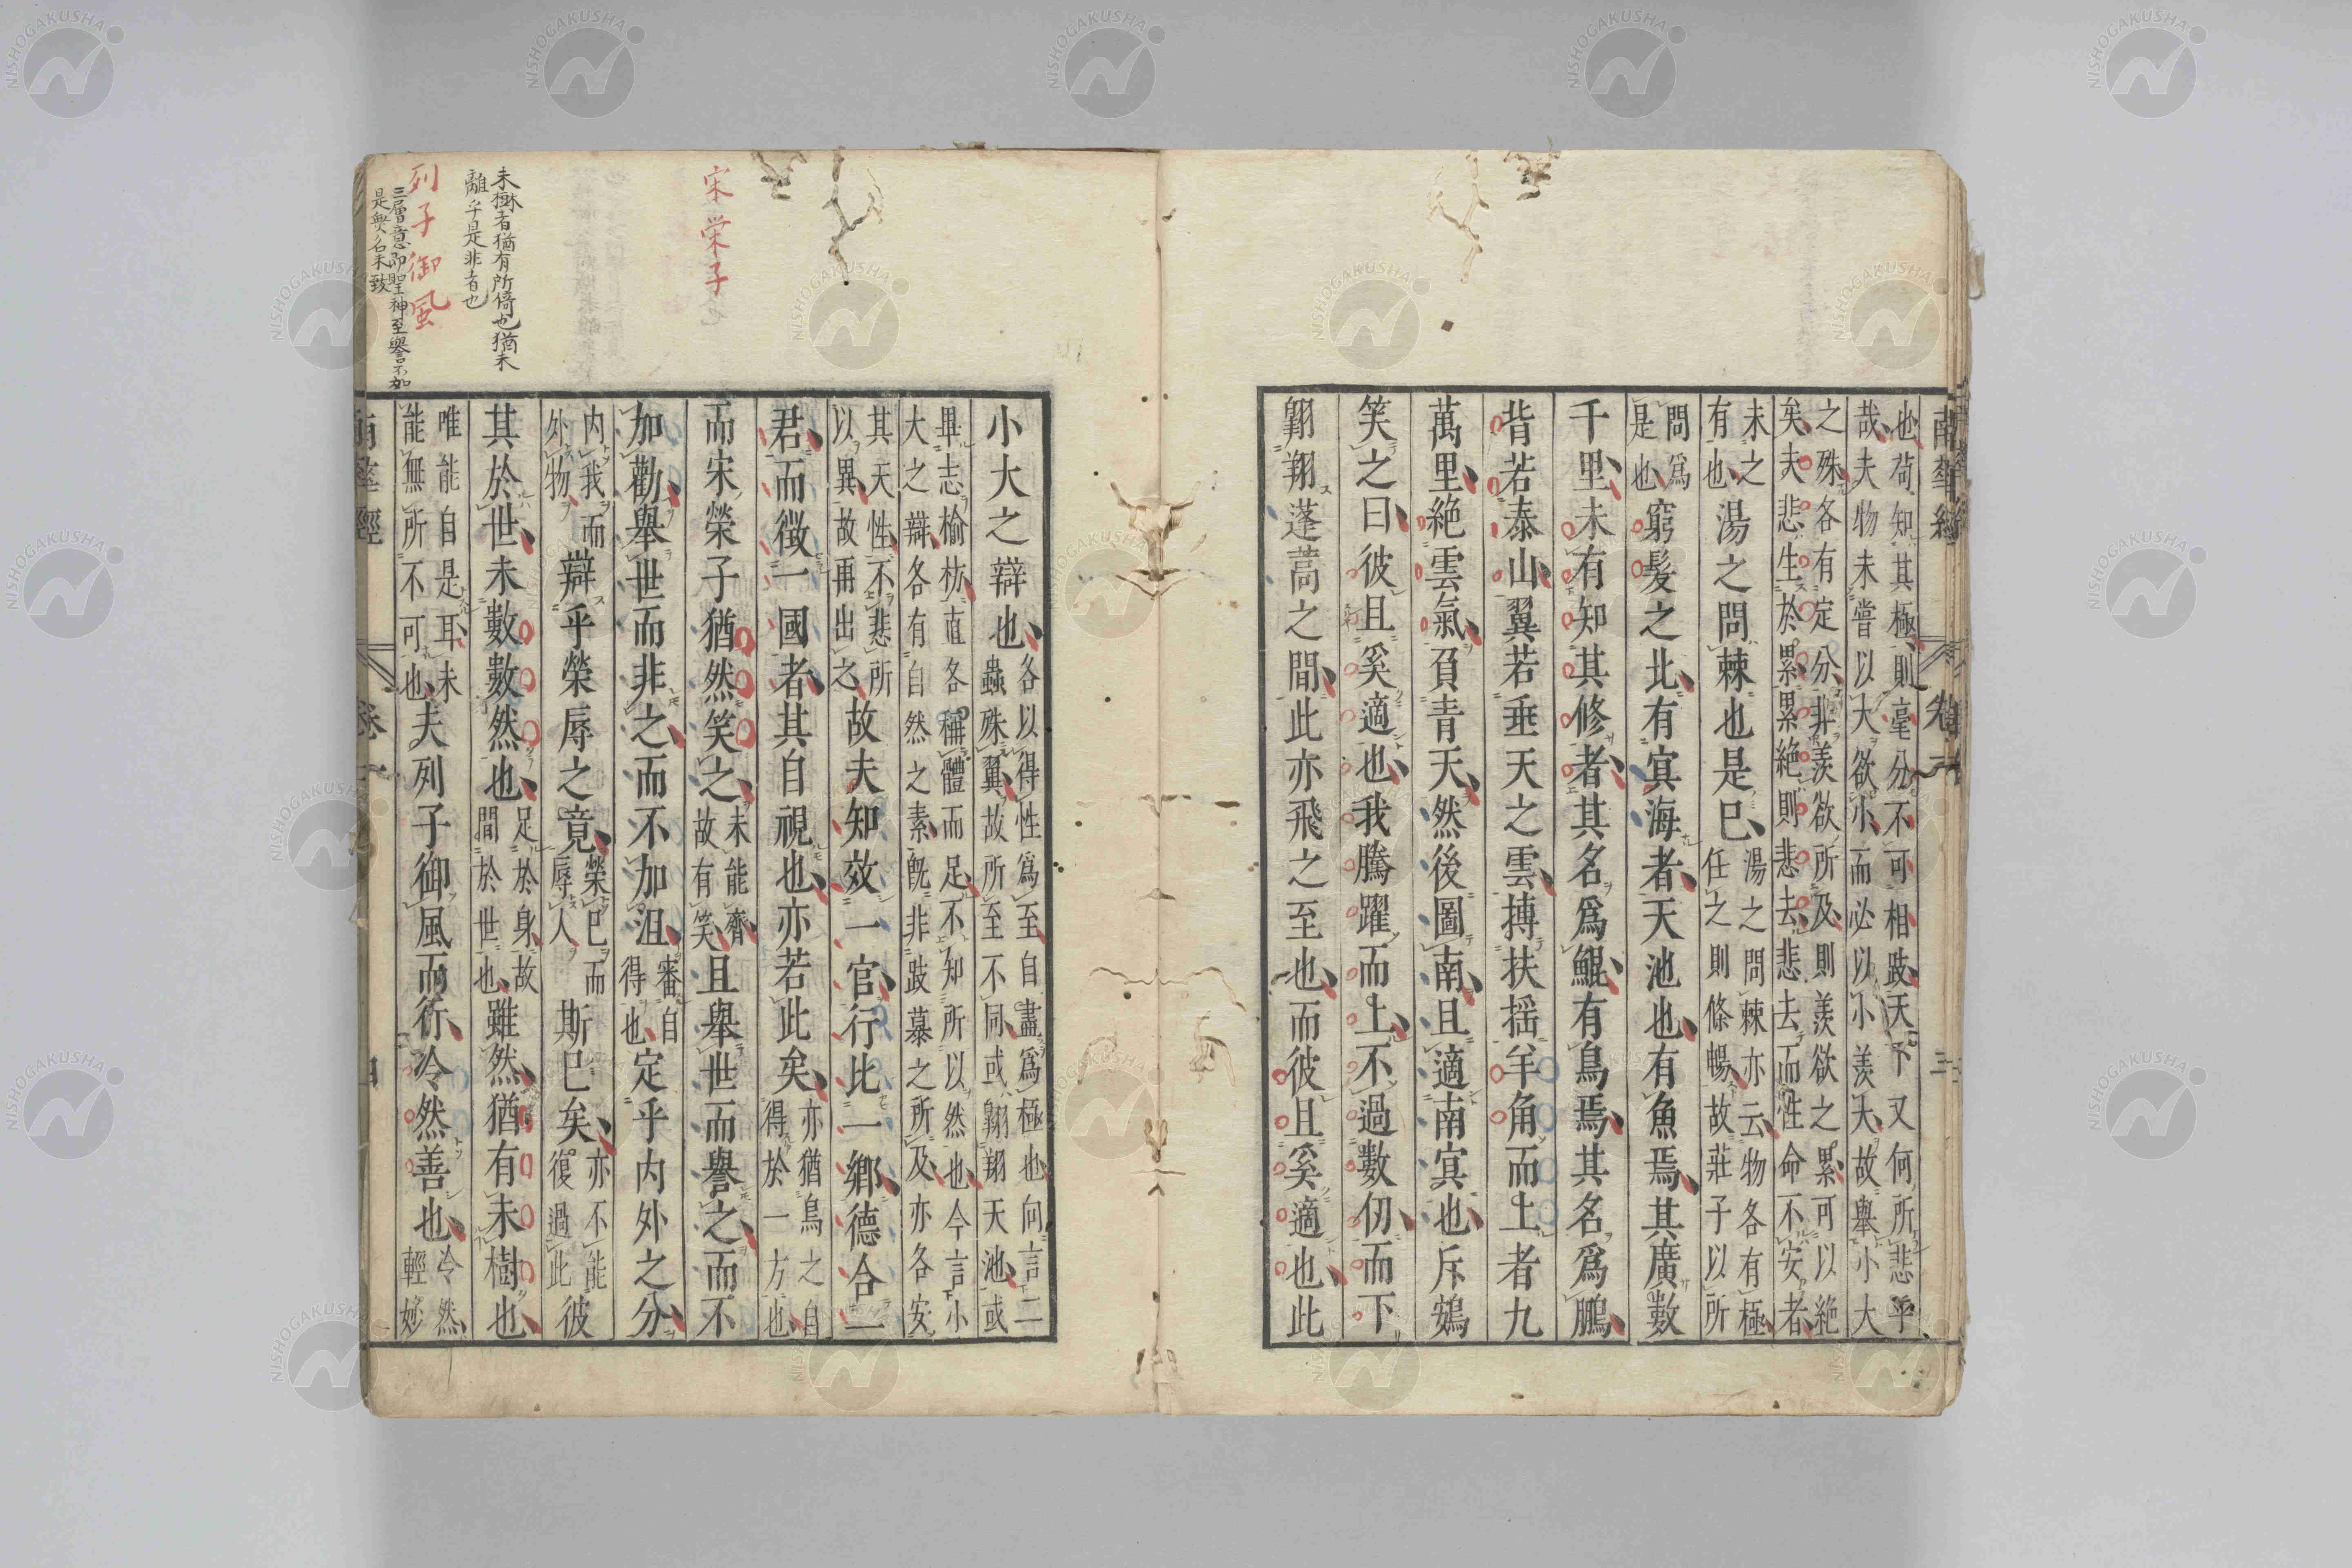 南華經 卷一 三
也苟知其極則毫分不可相跂天下又何所悲乎
哉夫物未嘗以大欲小而必以小羨大故舉小大
之殊各有定分非羨欲所及則羨欲之累可以絶
矣夫悲生於累累絶則悲去悲去而性命不安者
未之有也湯之問棘也是巳湯之問棘亦云物各有極任之則條暢故莊子以所
問爲是也窮髮之北有冥海者天池也有魚焉其廣數
千里未有知其修者其名爲鯤有鳥焉其名爲鵬
背若泰山翼若垂天之雲搏扶揺羊角而上者九
萬里絶雲氣負青天然後圖南且適南冥也斥鴳
笑之曰彼且奚適也我騰躍而上不過數仞而下
翺翔蓬蒿之間此亦飛之至也而彼且奚適也此
小大之辯也各以得性爲至自盡爲極也向言二蟲殊翼故所至不同或翺翔天池或
畢志榆枋直各稱體而足不知所以然也今言小
大之辯各有自然之素旣非跂慕之所及亦各安
其天性不悲所以異故再出之故夫知效一官行比一鄉德合一
君而徵一國者其自視也亦若此矣亦猶鳥之自得於一方也
而宋榮子猶然笑之未能齊故有笑且舉世而譽之而不
加勸舉世而非之而不加沮審自得也定乎内外之分
内我而外物辯乎榮辱之竟榮巳而辱人斯巳矣亦不能復過此彼
其於世未數數然也足於身故間於世也雖然猶有未樹也
唯能自是耳未能無所不可也夫列子御風而行冷然善也冷然輕妙
南華經 卷一 四
宋栄子
未樹者猶有所倚也猶未
離乎是非者也
列子御風
三層意即聖神至譽不如
是無名未致
NISHOGAKUSHA